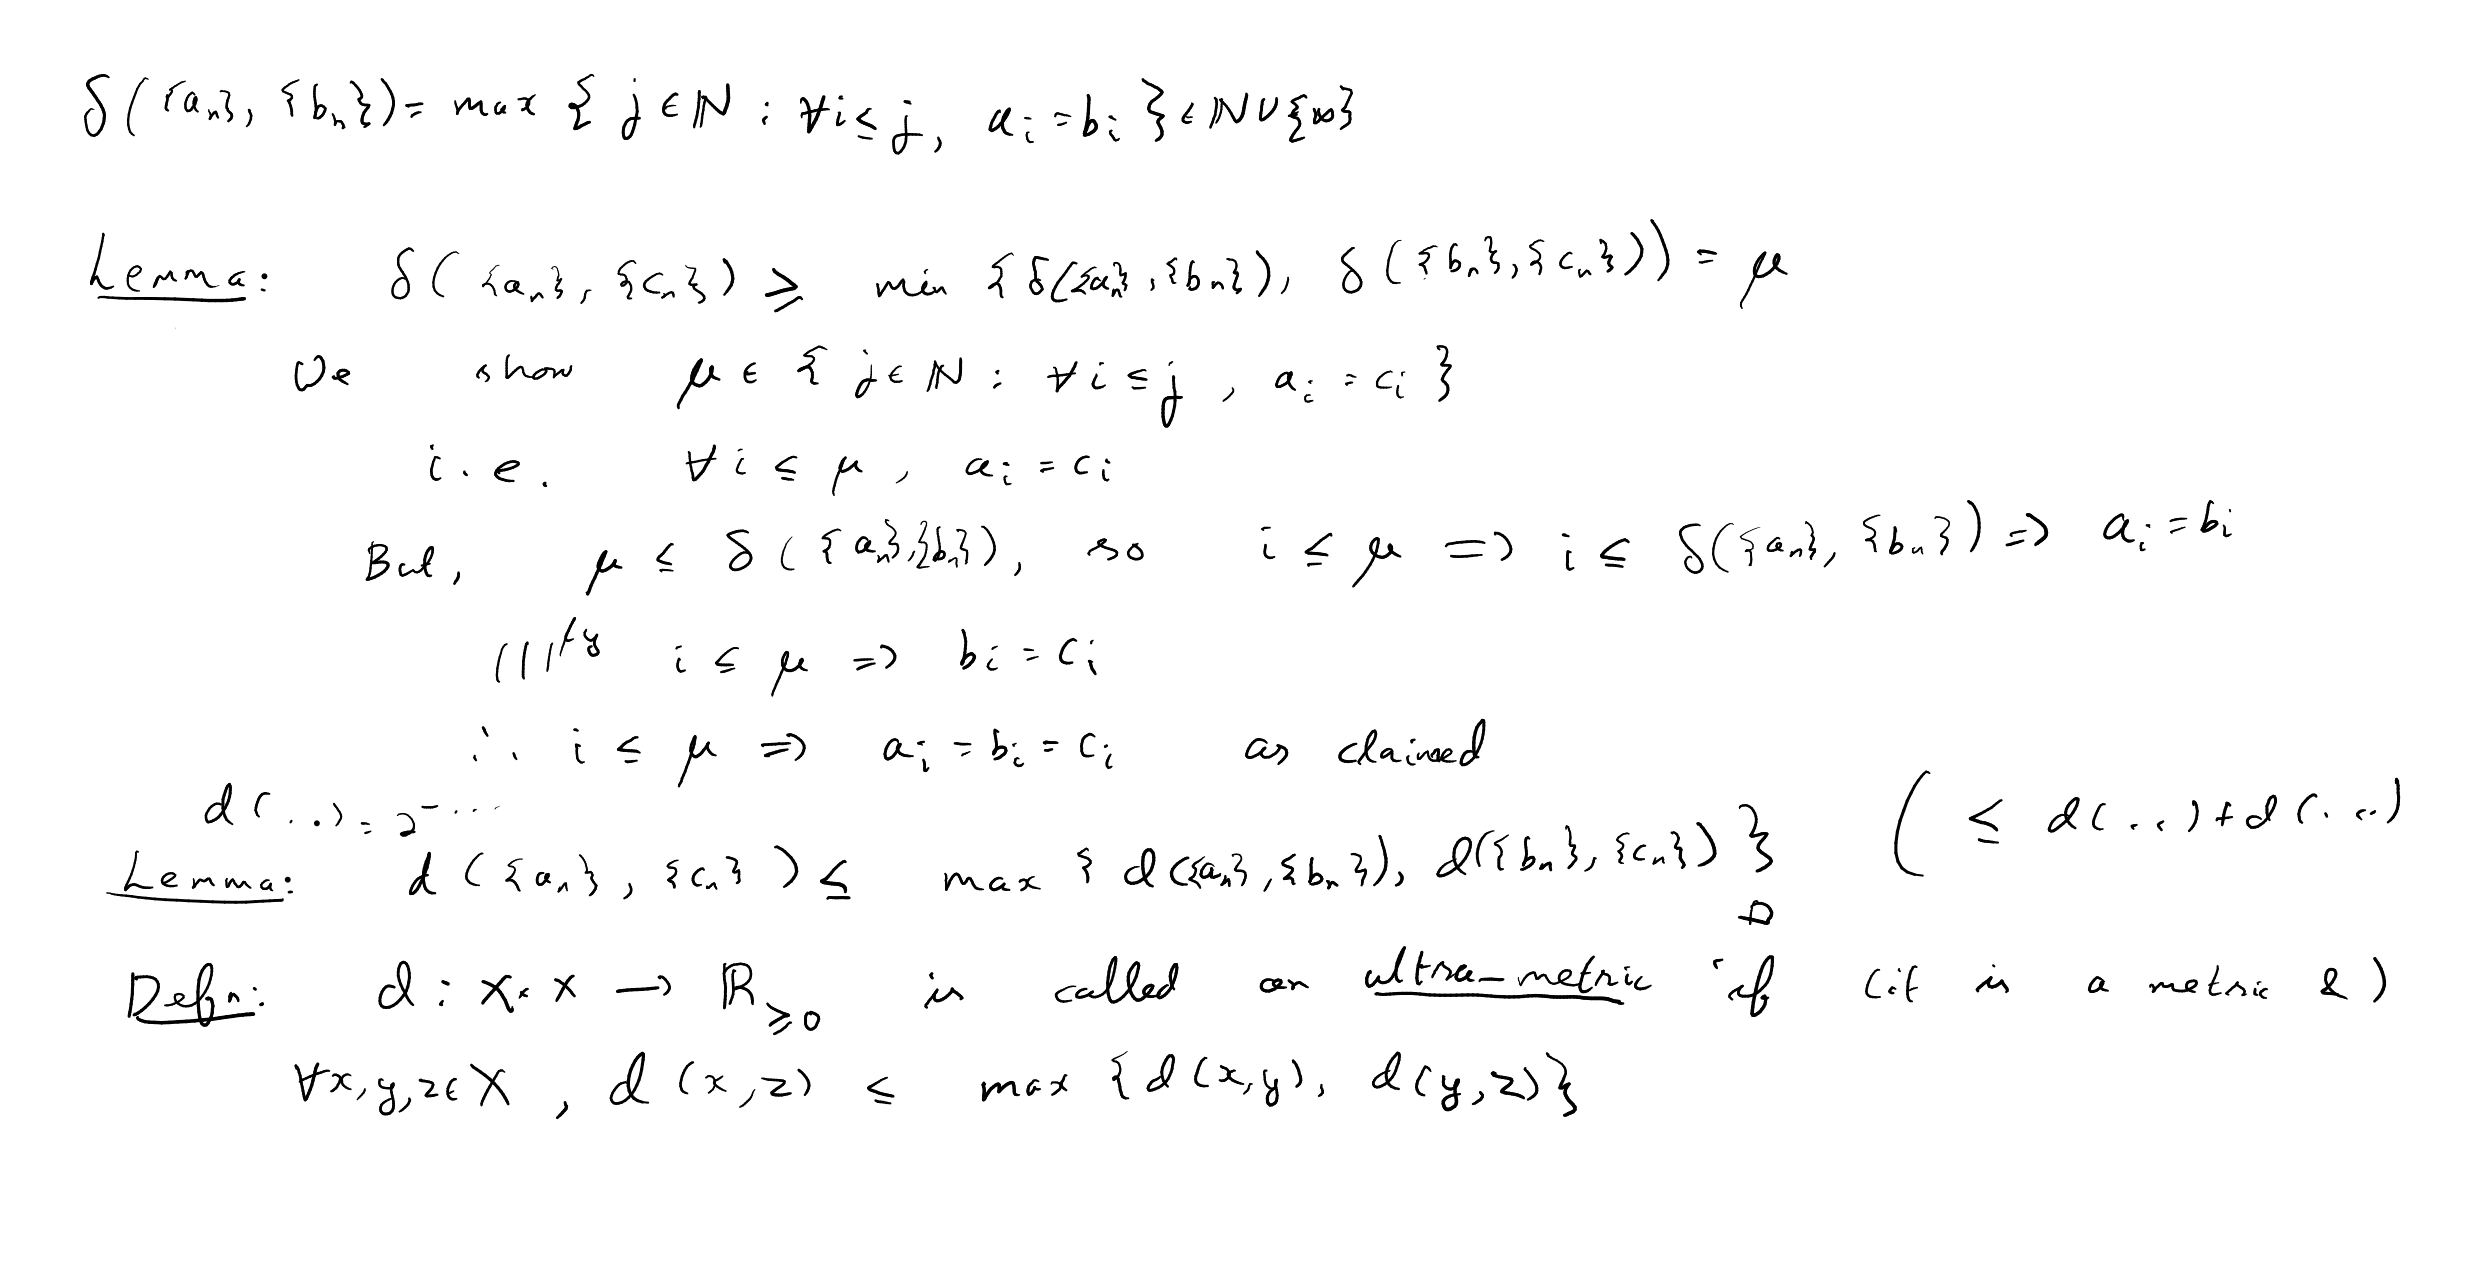 δ({aₙ}, {bₙ}) = max { j ∈ ℕ : ∀i ≤ j, aᵢ = bᵢ } ∈ ℕ ∪ {∞}
Lemma: δ({aₙ}, {cₙ}) ≥ min {δ({aₙ}, {bₙ}), δ({bₙ}, {cₙ})) = μ
We show μ ∈ { j ∈ ℕ : ∀i ≤ j, aᵢ = cᵢ }
i.e. ∀i ≤ μ, aᵢ = cᵢ
But, μ ≤ δ({aₙ}, {bₙ}), so i ≤ μ => i ≤ δ({aₙ}, {bₙ}) => aᵢ = bᵢ
|||ly i ≤ μ => bᵢ = cᵢ
∴ i ≤ μ => aᵢ = bᵢ = cᵢ as claimed
d(..) = 2^-...
Lemma: d({aₙ}, {cₙ}) ≤ max { d({aₙ}, {bₙ}), d({bₙ}, {cₙ}) } ( ≤ d(..) + d(..)
□
Defn: d : X × X → ℝ≥0 is called an ultra-metric if (it is a metric & )
∀x, y, z ∈ X, d(x, z) ≤ max {d(x, y), d(y, z)}